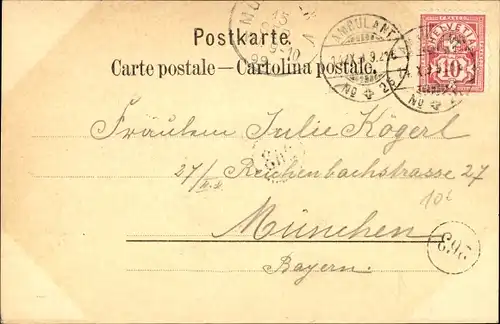 Postkarte.
Carte postale — Cartolina postale.
AMBULANT
No
No
HELVETIA
10
Fräulein Julie Kögerl
27/II. Reichenbachstrasse 27
München
Bayern.